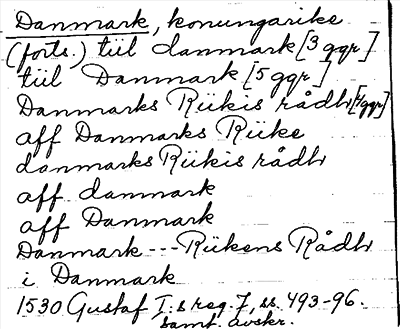 Danmark, konungarike
(forts.) tiil danmark [3 ggr]
tiil Danmark [5 ggr]
Danmarks Riikis rådh [4 ggr]
aff Danmarks Riike
danmarks Riikis rådh
aff danmark
aff Danmark
Danmark --- Riikens Rådh
i Danmark
1530 Gustaf I:s reg. 7, ss. 493-96.
Samt. avskr.